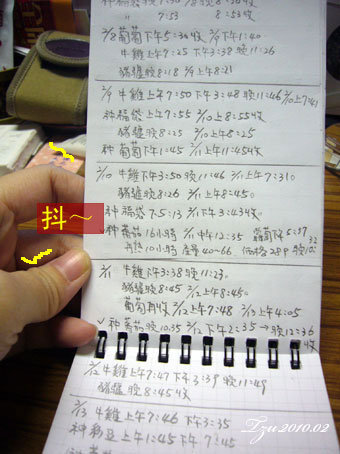 7:53 8:53收
2/8 葡萄下午5:30收 2/9下午1:40
牛雞上午7:25 下午3:38 晚11:26
豬獾晚8:18 2/9上午8:21
2/9 牛雞上午7:50 下午3:48 晚11:46 2/10上午7:41
种福袋上午7:55 2/10上午8:55收
豬獾晚8:25 2/10上午8:25
种葡萄下午1:45 2/11上午11:45收
2/10 牛雞下午3:50 晚11:46 2/11上午7:31。
豬獾晚8:26 2/11上午8:45。
种福袋7:5:13 2/11下午3:43收
抖～
种蕃茄16小時 2/11中午12:35
再熟10小時 產量40~66 価格28P
2/11 牛雞下午3:38 晚11:23。
豬獾晚8:45 2/12上午8:45。
葡萄再收2/12上午7:48 2/13上午4:05
种蕃茄晚10:35 2/12下午2:35→晚12:36收
2/12 牛雞上午7:47 下午3:39 晚11:49
豬獾晚8:45收
2/13 牛雞上午7:46 下午3:35
种豌豆上午1:45 下午7:45
Tzu 2010.02